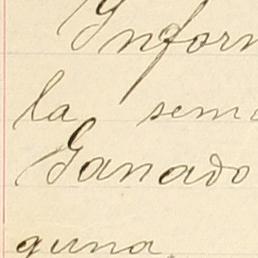 Inform
la sema
Ganado
guna.